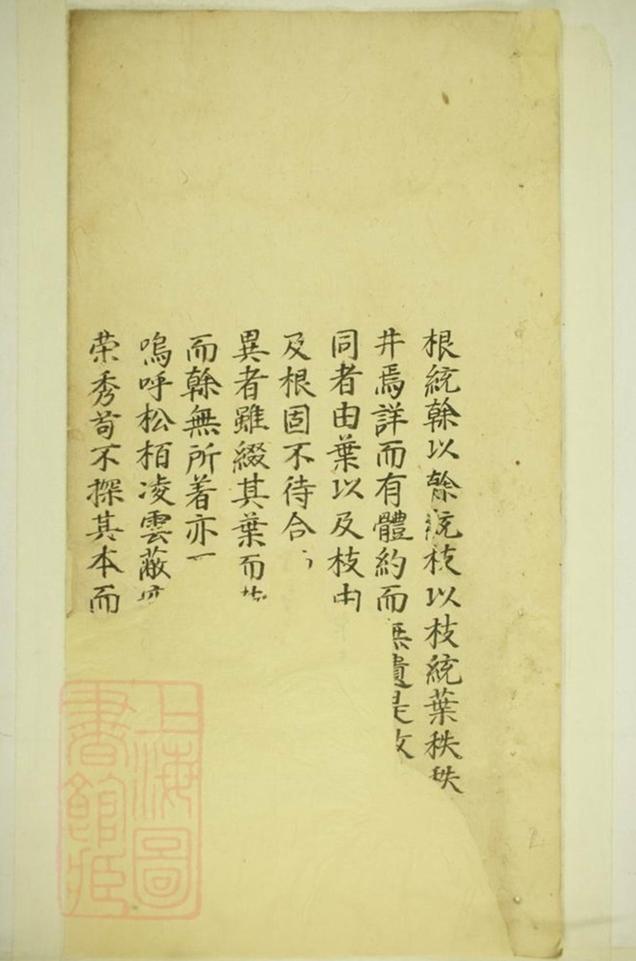 根統榦以榦統枝以枝統葉秩秩
井焉詳而有體約而無遺是故
同者由葉以及枝由
及根固不待合
異者雖綴其葉而
而榦無所着亦
嗚呼松栢凌雲蔽
荣秀苟不探其本而
上海圖
書館藏